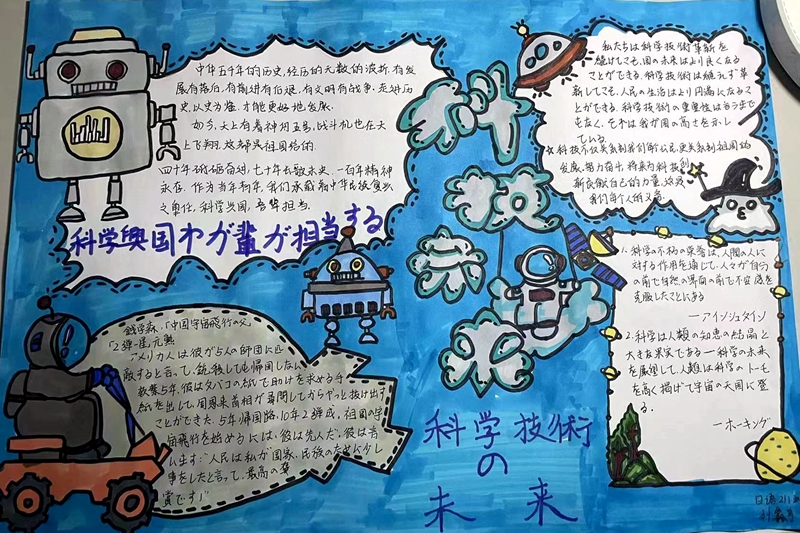 中华五千年的历史,经历的无数的波折.有发
展有落后,有前进有后退,有文明有战争.走好历
史,以史为鉴,才能更好地发展.
如今,天上有着神舟五号,战斗机也在天
上飞翔.这都是祖国给的.
四十年砥砺奋进,七十年长歌未央,一百年精神
永在.作为当年青年,我们承载着中华民族复兴
之重任,科学兴国,吾辈担当.
科学興国わが輩が担当する
私たちは科学技術革新を
続けてこそ、国の未来はより良くなる
ことができる.科学技術は絶えず革
新してこそ、人民の生活はより円満になるこ
とができる.科学技術の重要性は言うまで
もなく、それは我が国の高さを示し
ている.
☆科技不仅关系到我们每个公民,更关系到祖国的
发展.努力奋斗,将来为科技创
新贡献自己的力量.这是
我们每个人的义务.
科
技
未
来
銭学森、「中国宇宙飛行の父」
「2弾一星」元勲
アメリカ人は彼が5人の師団に匹
敵すると言って、銃殺しても帰国しない
5年帰国路、10年2弾成、祖国の宇
宙飛行を始めるには、彼は先人だ。彼は言
い出す:"人民は私が国家、民族のために少し
事をしたと言って、最高の奨
賞です!"
1.科学の不朽の栄誉は、人間の人に
対する作用を通じて、人々が自分
の前で自然の界面の前で不安感を
克服したことにある
—アインシュタイン
2.科学は人類の知恵の結晶と
大きな果実である—科学の未来
を展望して、人類は科学のトーチ
を高く掲げて宇宙の天国に登
る.
—ホーキング
科学技術
の
未来